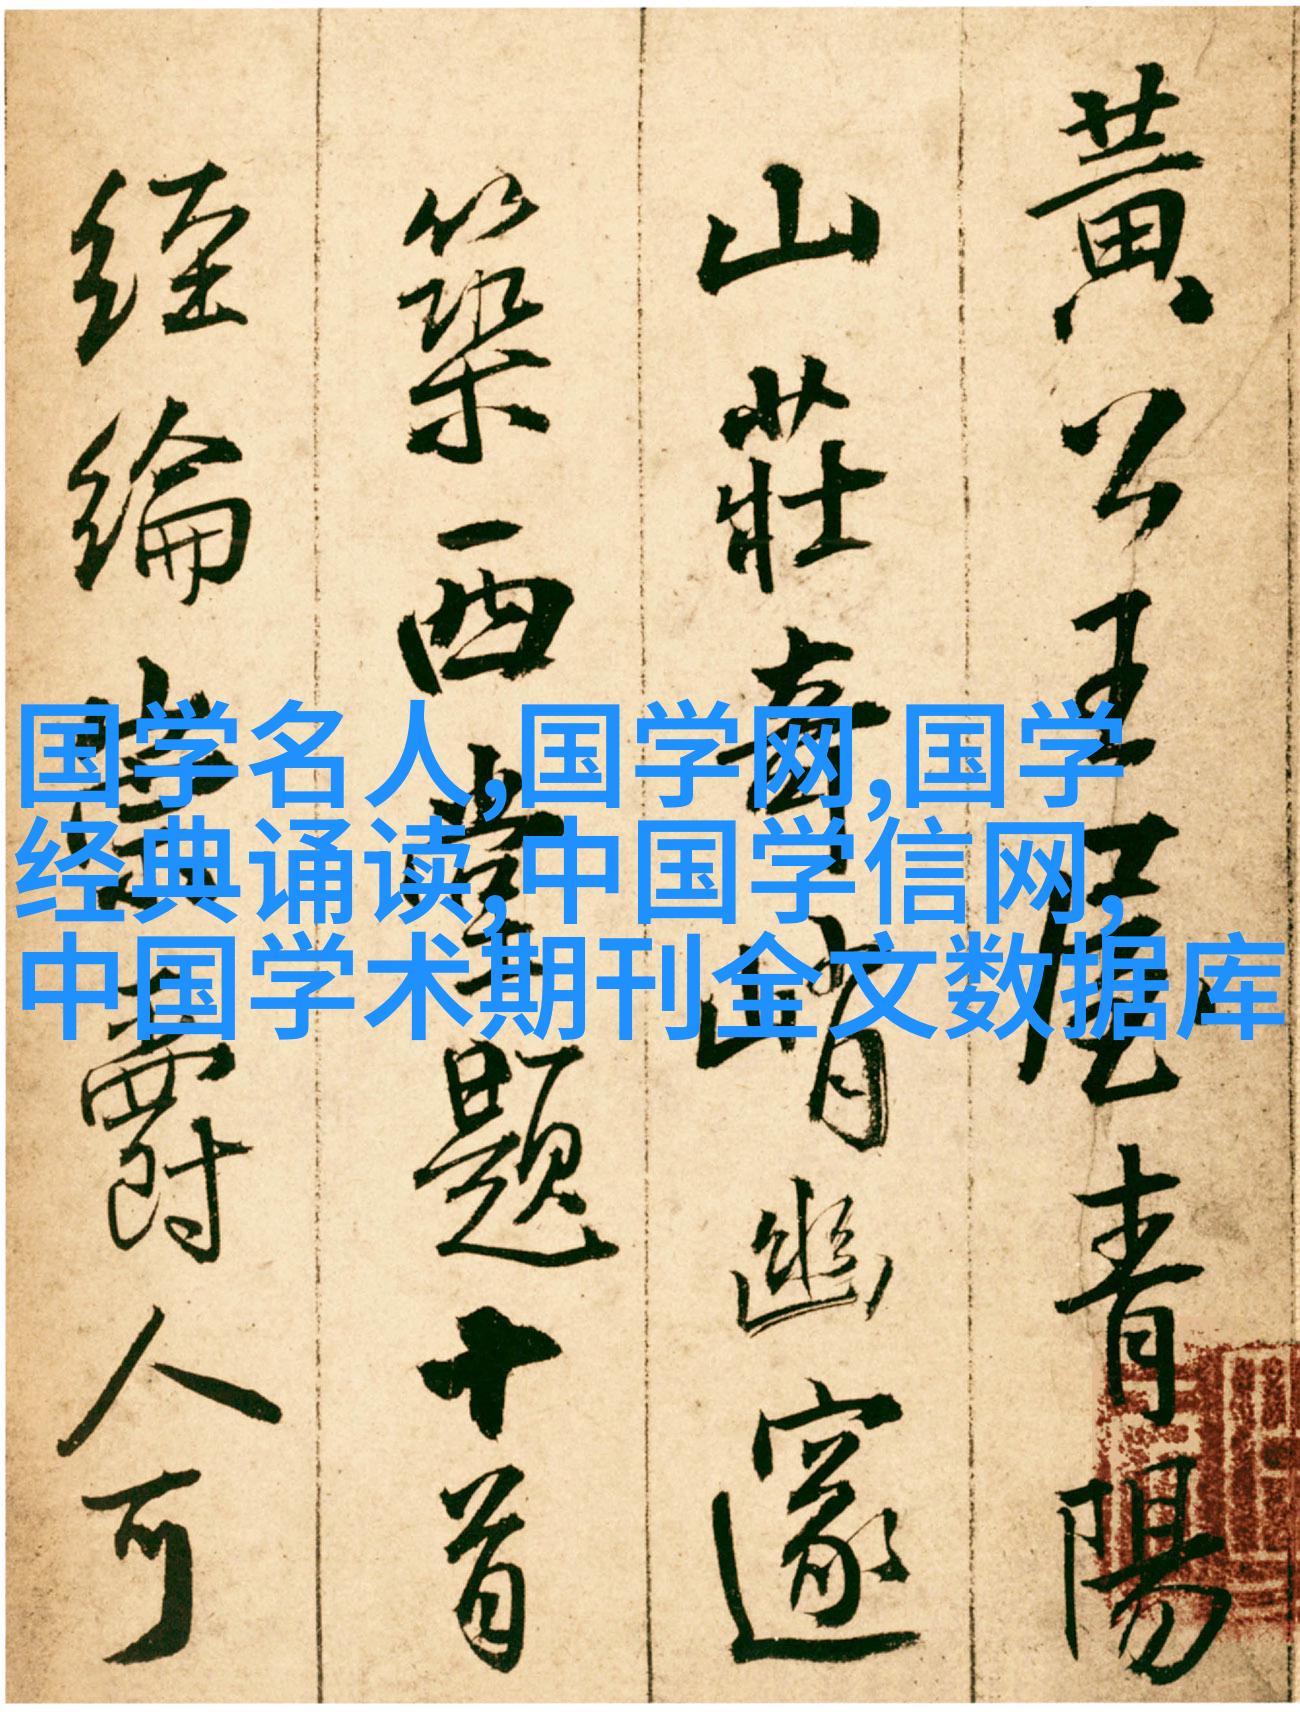 黃公王屋青陽
山莊奇峭幽邃
築西堂題十首
經綸爵人可
国学名人,国学网,国学
经典诵读,中国学信网,
中国学术期刊全文数据库